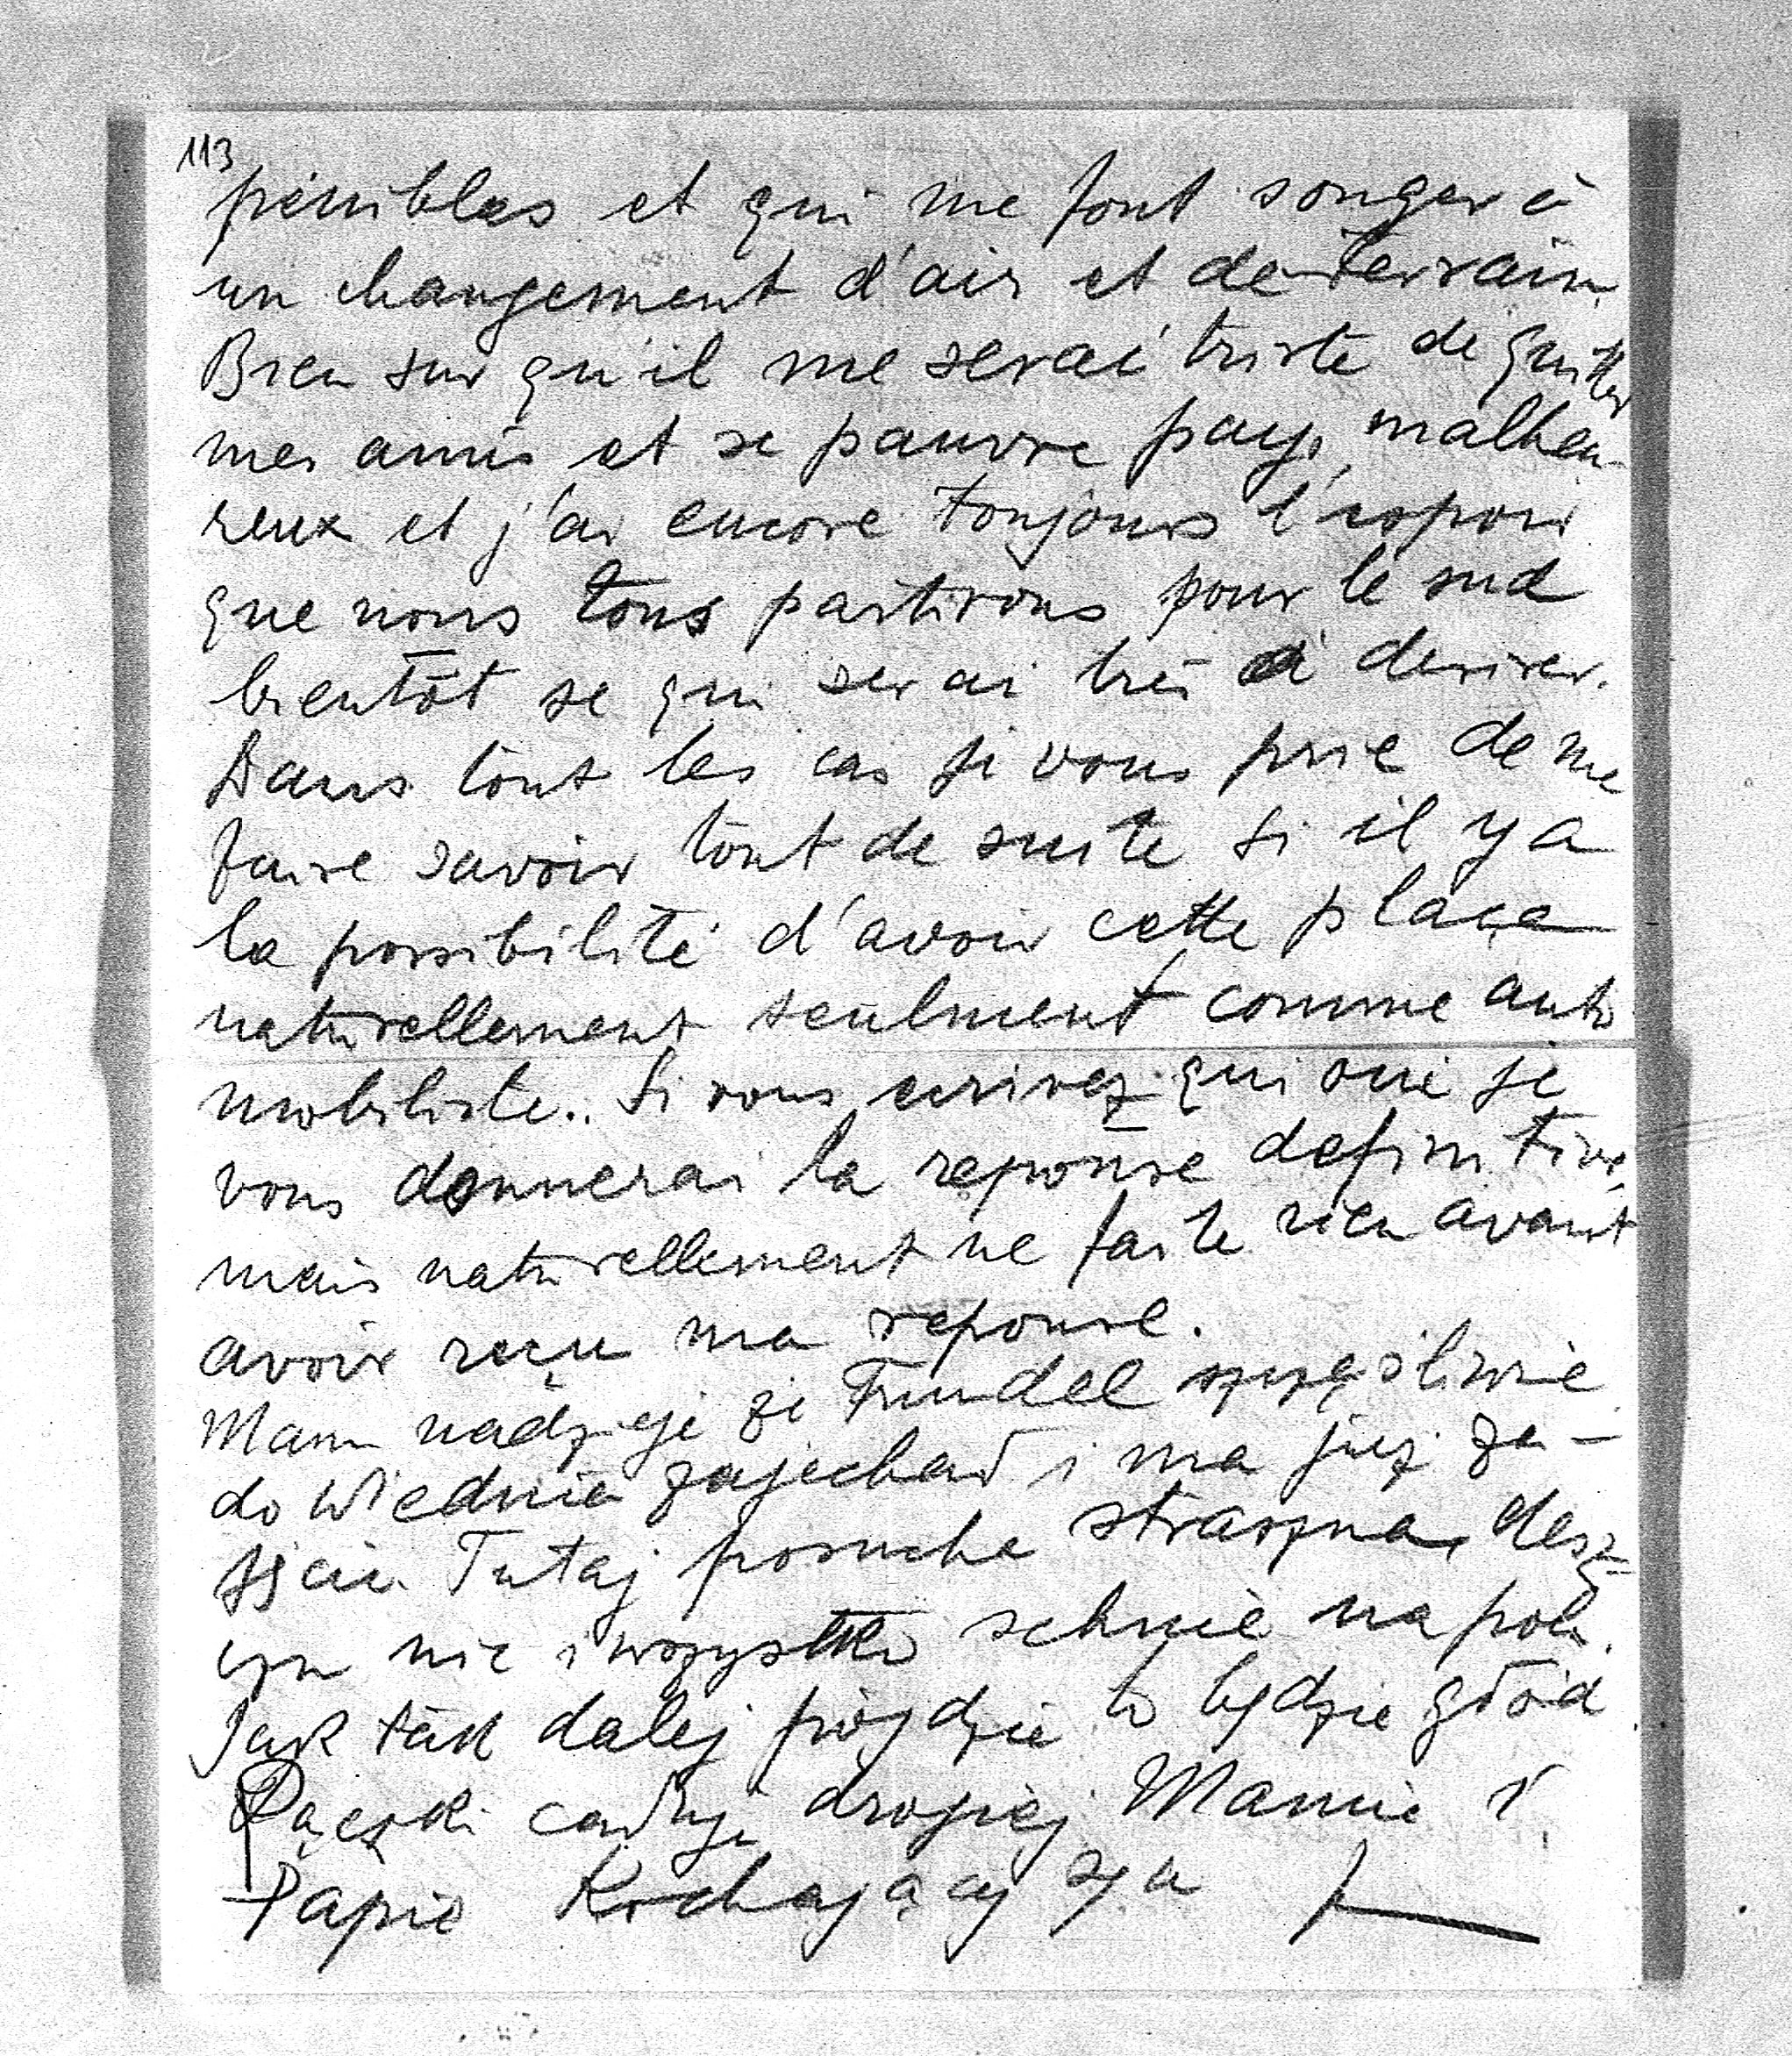 113
pénibles et qui me font songer à
un changement d'air et de terrain.
Bien sur qu'il me serai triste de quitter
mes amis et se pauvre pays, malheu-
reux et j'ai encore toujours l'espoir
que nous tous partirons pour le sud
bientôt se qui serai très à desirer.
Dans tout les cas je vous prie de me
faire savoir tout de suite si il y a
la possibilité d'avoir cette plaça
naturellement seulment comme auto
mobiliste. Si vous ecrivez qui oui je
vous donnerai la reponse definitive,
mais naturellement ne faite rien avant
avoir reçu ma reponse.
Mam nadzieje że Trundel szczęśliwie
do Wiednia zajechał i ma już za-
jęcie. Tutaj posucha straszna, desz-
czu nic i wszystko schnie na polu.
Jak tak dalej pójdzie to będzie głód
Rączki całuje drogiej Mamie i
Papie Kochający syn